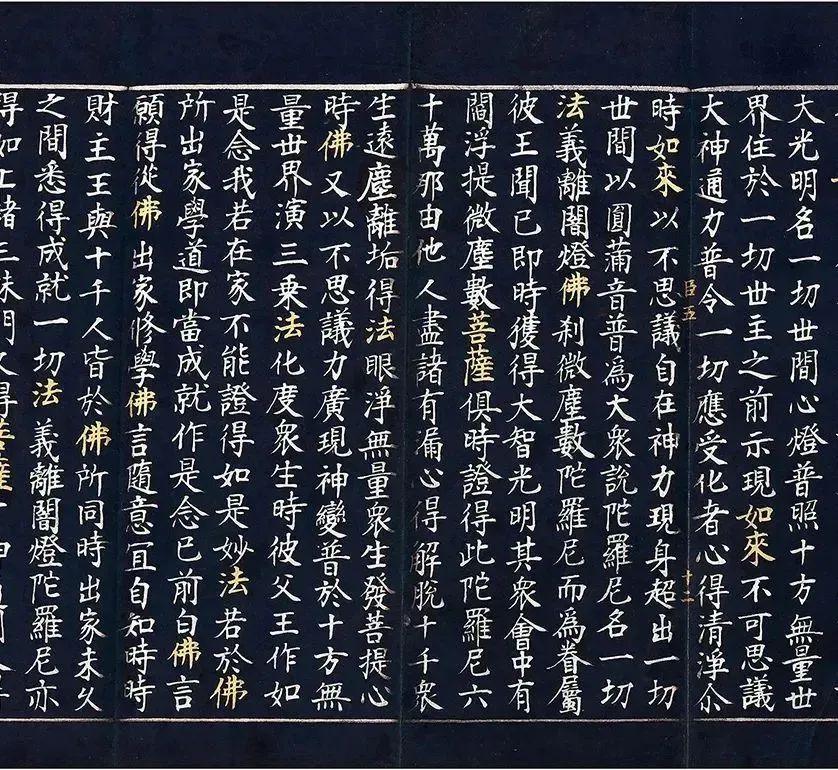 大光明名一切世間心燈普照十方無量世
界住於一切世主之前示現如來不可思議
大神通力普令一切應受化者心得清淨尒
臣五
十二
時如來以不思議自在神力現身超出一切
世間以圓滿音普爲大衆說陀羅尼名一切
法義離闇燈佛刹微塵數陀羅尼而爲眷屬
彼王聞已即時獲得大智光明其衆會中有
閻浮提微塵數菩薩俱時證得此陀羅尼六
十萬那由他人盡諸有漏心得解脫十千衆
生遠塵離垢得法眼淨無量衆生發菩提心
時佛又以不思議力廣現神變普於十方無
量世界演三乗法化度衆生時彼父王作如
是念我若在家不能證得如是妙法若於佛
所出家學道即當成就作是念已前白佛言
願得從佛出家修學佛言隨意宜自知時時
財主王與十千人皆於佛所同時出家未久
之間悉得成就一切法義離闇燈陀羅尼亦
得如上諸三昧門又得菩薩